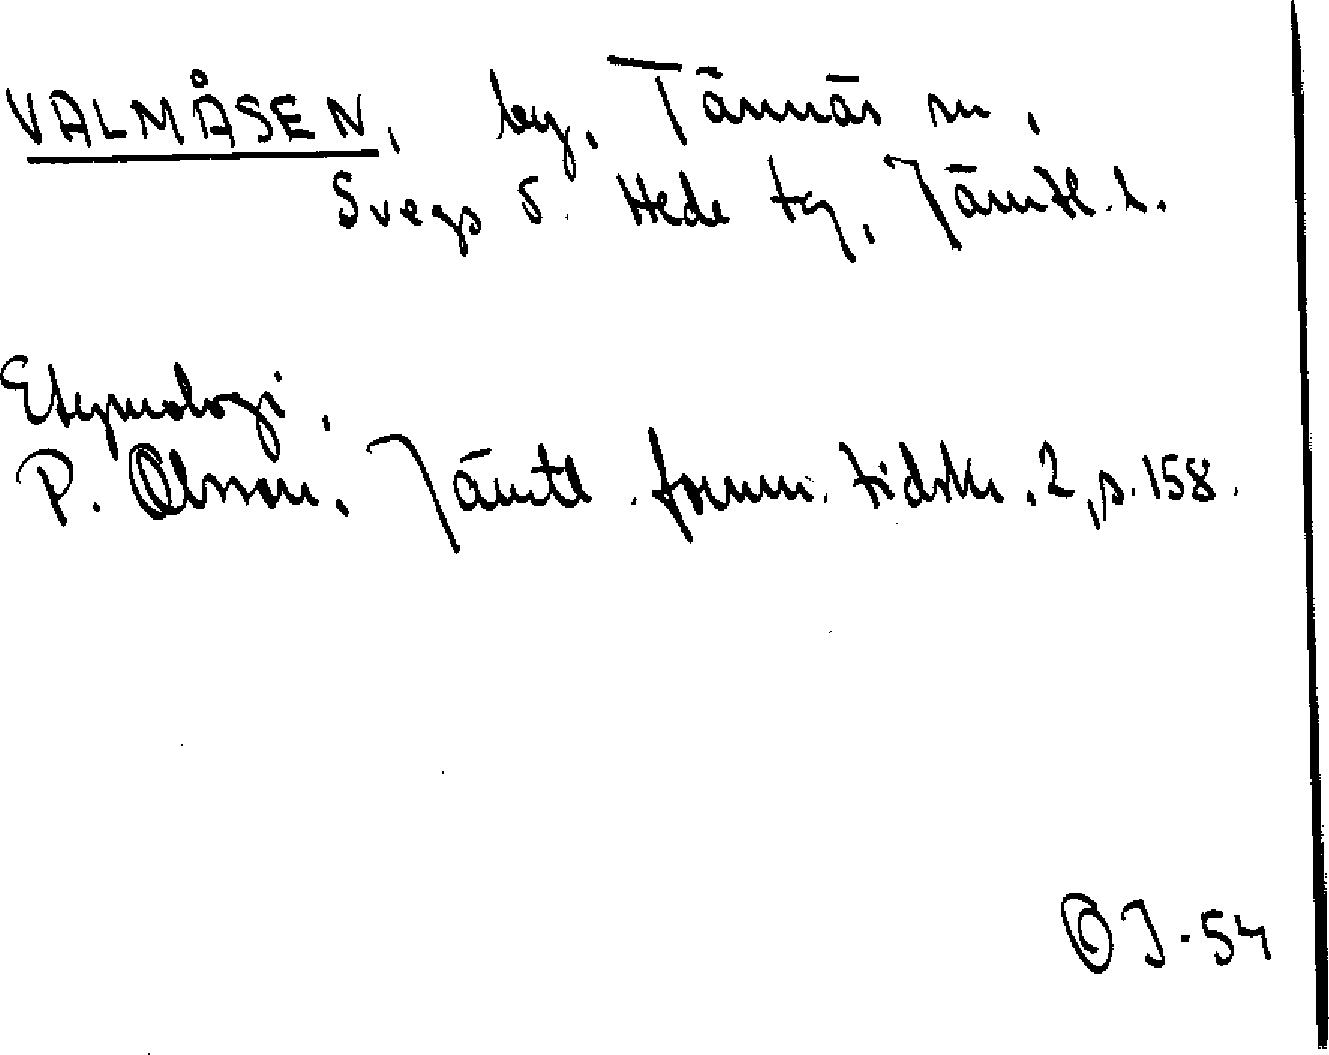 VALMÅSEN, by, Tännäs sn,
Svegs o. Hede tg, Jämtl. l.
Etymologi,
P. Olsson, Jämtl. fornm. tidskr. 2, s. 158.
OJ-54